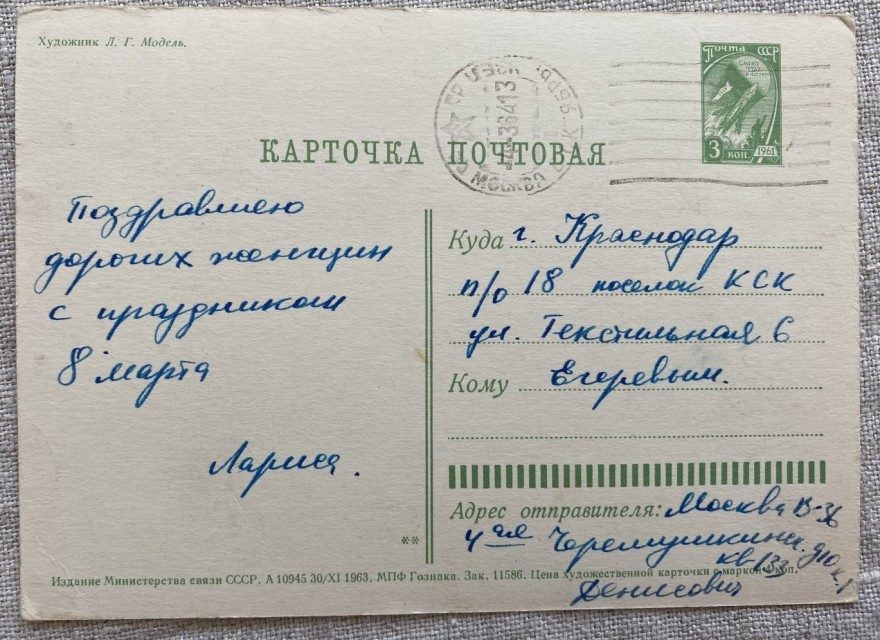 Художник Л. Г. Модель.
Почта СССР
3 коп
1961
МОСКВА
КАРТОЧКА ПОЧТОВАЯ
Поздравляю
дорогих женщин
с праздником
8 марта
Лариса.
Куда г. Краснодар
п/о 18 поселок КСК
ул. Текстильная 6
Кому Егоревым.
Адрес отправителя: Москва В-36
4ая Черемушкинс.
кв 133
Денисович
**
Издание Министерства связи СССР. А 10945 30/XI 1963. МПФ Гознака. Зак. 11586. Цена художественной карточки с маркой 4 коп.